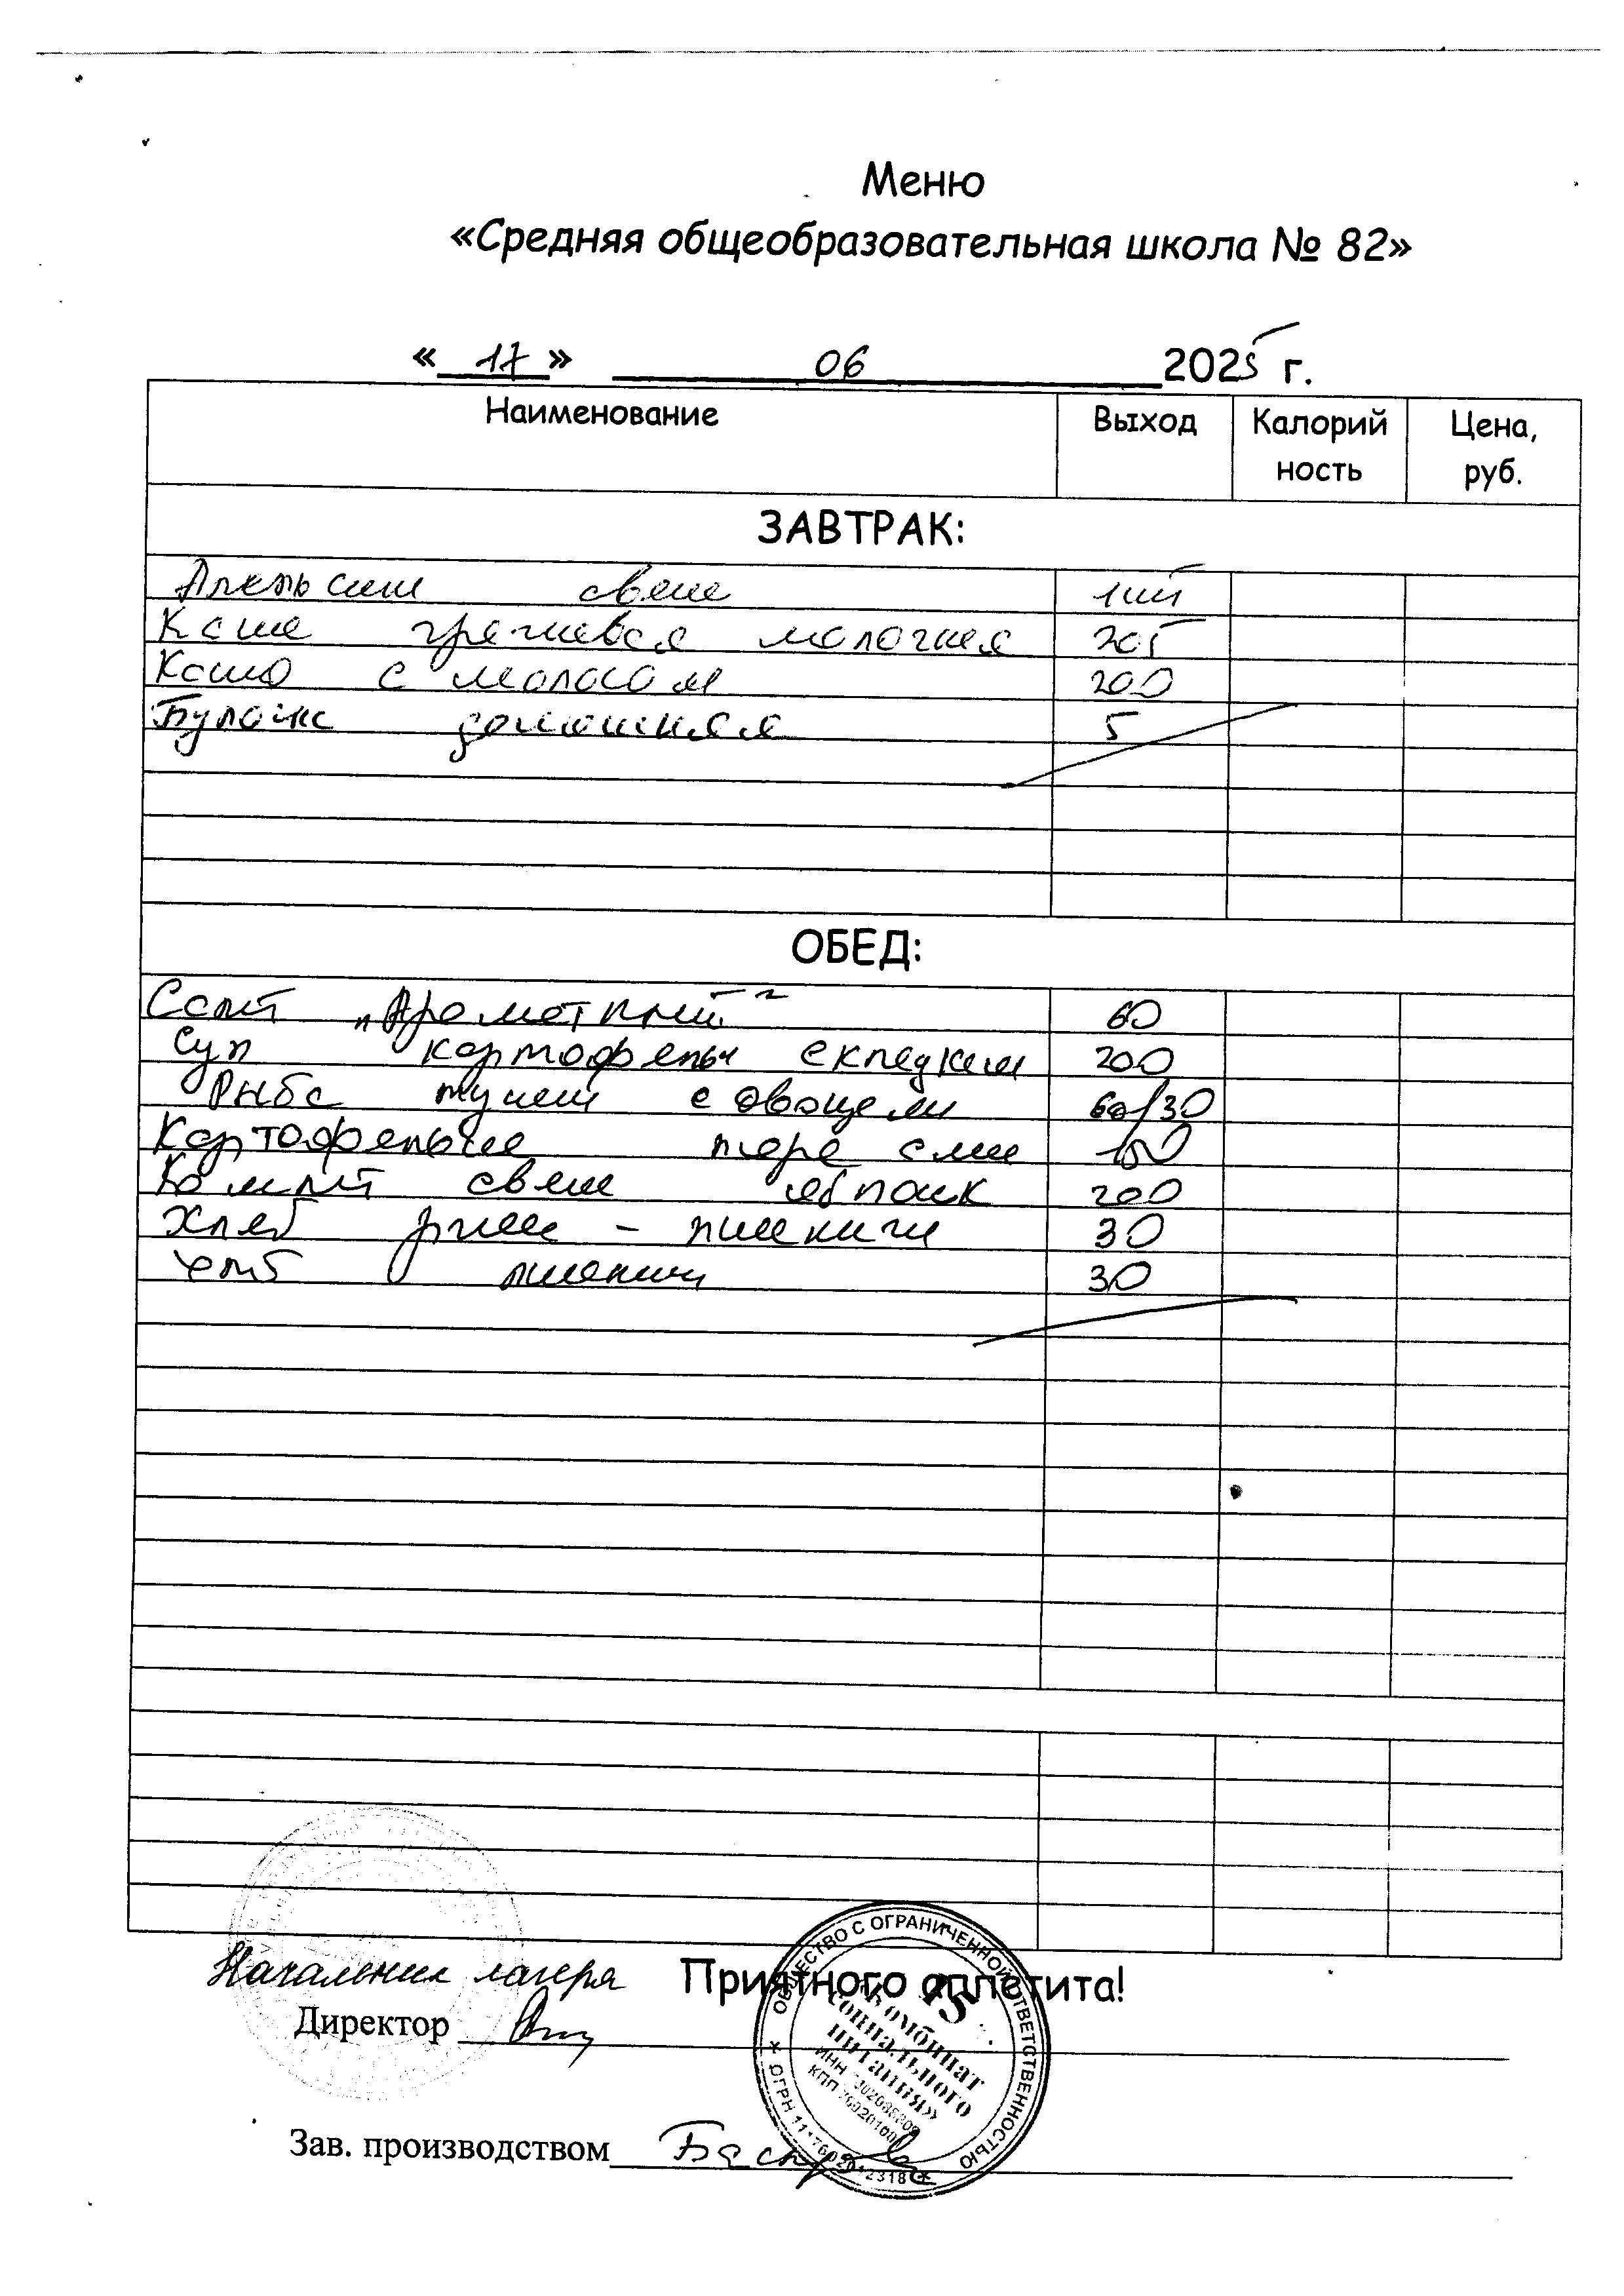 Меню
«Средняя общеобразовательная школа № 82»
« 17 » 06 2025 г.
Наименование Выход Калорий ность Цена, руб.
ЗАВТРАК:
Апельсин свеж 1шт
Каша гречневая молочная 205
Какао с молоком 200
Булочка домашняя 5
ОБЕД:
Салат "Ароматный" 60
Суп картофельн с клецками 200
Рыба тушен с овощами 60/30
Картофельное пюре слив 150
Компот свеж яблок 200
Хлеб ржан - пшенич 30
Хлеб пшенич 30
Начальник лагеря Приятного аппетита!
Директор
ОБЩЕСТВО С ОГРАНИЧЕННОЙ ОТВЕТСТВЕННОСТЬЮ
«Комбинат
социального
питания»
ИНН
КПП
ОГРН
Зав. производством